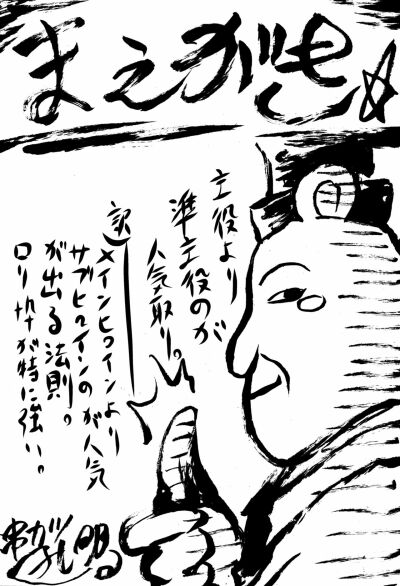 まえがき☆
主役より
準主役のが
人気取り。
訳)メインヒロインより
サブヒロインのが人気
が出る法則。
ロリ枠が特に強い。
串カツ孔明